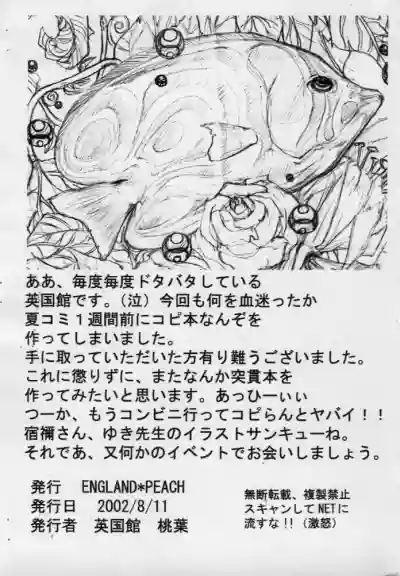 ああ、毎度毎度ドタバタしている
英国館です。(泣) 今回も何を血迷ったか
夏コミ1週間前にコピ本なんぞを
作ってしまいました。
手に取っていただいた方有り難うございました。
これに懲りずに、またなんか突貫本を
作ってみたいと思います。あっひーぃぃ
つーか、もうコンビニ行ってコピらんとヤバイ!!
宿禰さん、ゆき先生のイラストサンキューね。
それであ、又何かのイベントでお会いしましょう。
発行 ENGLAND*PEACH
発行日 2002/8/11
発行者 英国館 桃葉
無断転載、複製禁止
スキャンしてNETに
流すな!!(激怒)